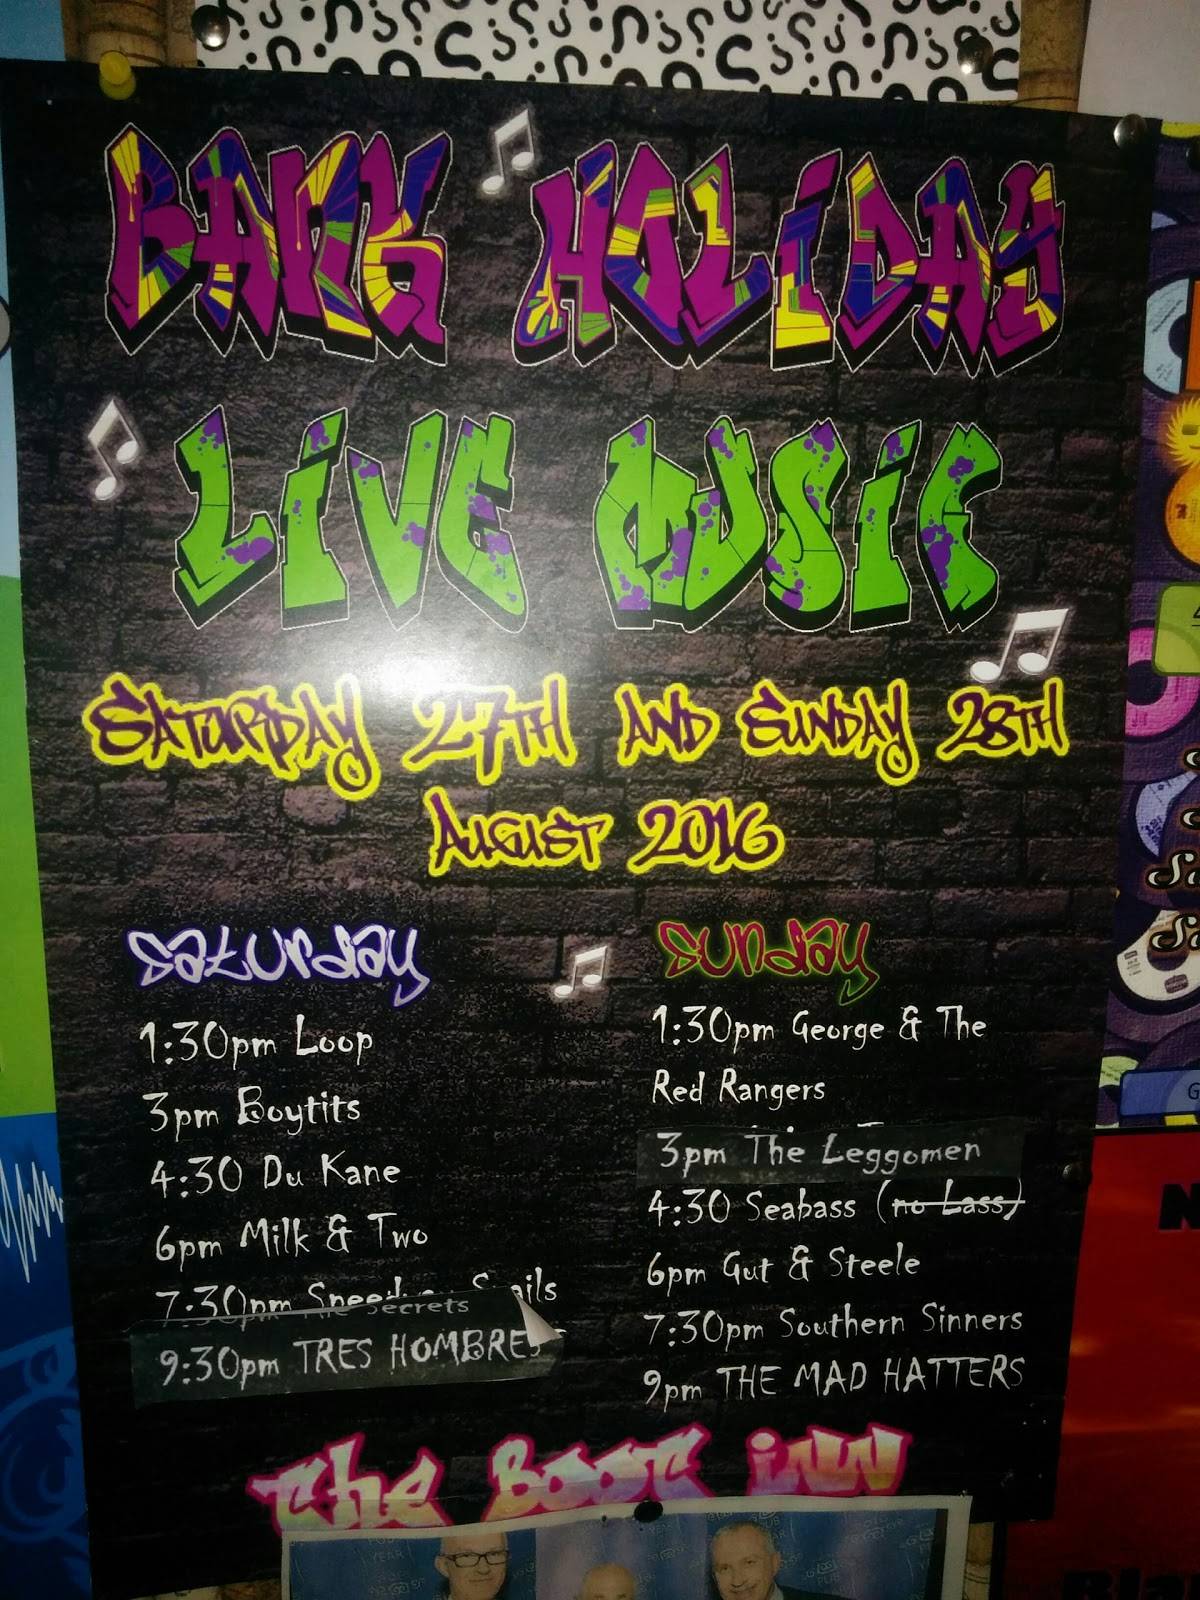 BANK HOLIDAY
LIVE MUSIC
SATURDAY 27TH AND SUNDAY 28TH
AUGUST 2016
Saturday
1:30pm Loop
3pm Boytits
4:30 Du Kane
6pm Milk & Two
7:30pm
Secrets
9:30pm TRES HOMBRES
Sunday
1:30pm George & The
Red Rangers
3pm The Leggomen
4:30 Seabass (no Lass)
6pm Gut & Steele
7:30pm Southern Sinners
9pm THE MAD HATTERS
The Boot inn